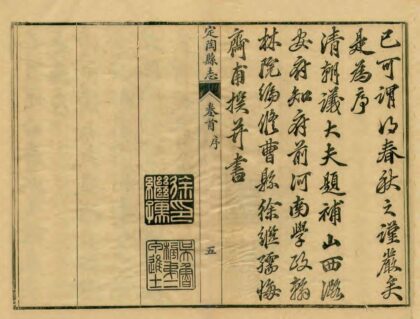 已可謂得春秋之謹嚴矣
是為序
清朝議大夫題補山西潞
安府知府前河南學政翰
林院編修曹縣徐繼孺悔
齋甫撰并書
定陶縣志
卷首
序
五
徐印繼孺